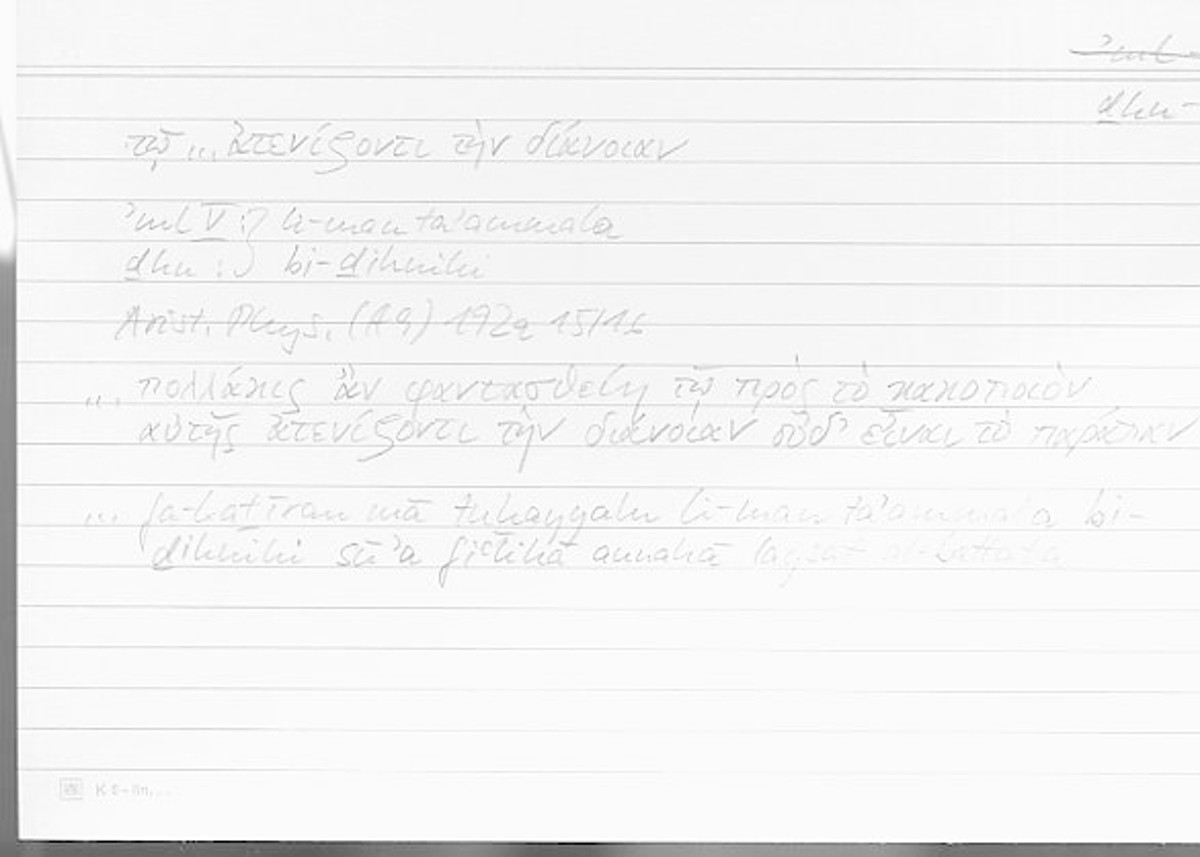 ʾml
ḏhn-
τῷ ... ἀτενίζοντι τὴν διάνοιαν
ʾml V :} li-man taʾammala
ḏhn :} bi-ḏihnihi
Arist. Phys. (A9) 192a 15/16
... πολλάκις ἂν φαντασθείη τῷ πρὸς τὸ κακοποιὸν
αὐτῆς ἀτενίζοντι τὴν διάνοιαν οὐδ' εἶναι τὸ παράπαν
... fa-kaṯīran mā tuḫayyalu li-man taʾammala bi-
ḏihnihi sūʾa fiʿlihā annahā laysat al-battata